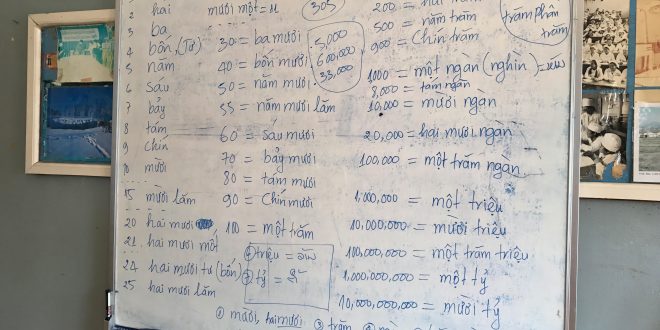 2 hai
3 ba
4 bốn, (Tư)
5 năm
6 sáu
7 bảy
8 tám
9 chín
10 mười
15 mười lăm
20 hai mươi
21 hai mươi mốt
24 hai mươi tư (bốn)
25 hai mươi lăm
mười một =
30 = ba mươi
40 = bốn mươi
50 = năm mươi
55 = năm mươi lăm
60 = sáu mươi
70 = bảy mươi
80 = tám mươi
90 = chín mươi
100 = một trăm
triệu =
tỷ =
305
5,000
600,000
33,000
200 = hai trăm
500 = năm trăm
900 = chín trăm
1000 = một ngàn (nghìn) =
8,000 = tám ngàn
10,000 = mười ngàn
20,000 = hai mươi ngàn
100,000 = một trăm ngàn
1,000,000 = một triệu
10,000,000 = mười triệu
100,000,000 = một trăm triệu
1,000,000,000 = một tỷ
10,000,000,000 = mười tỷ
trăm phần
trăm
hai mươi ③ trăm